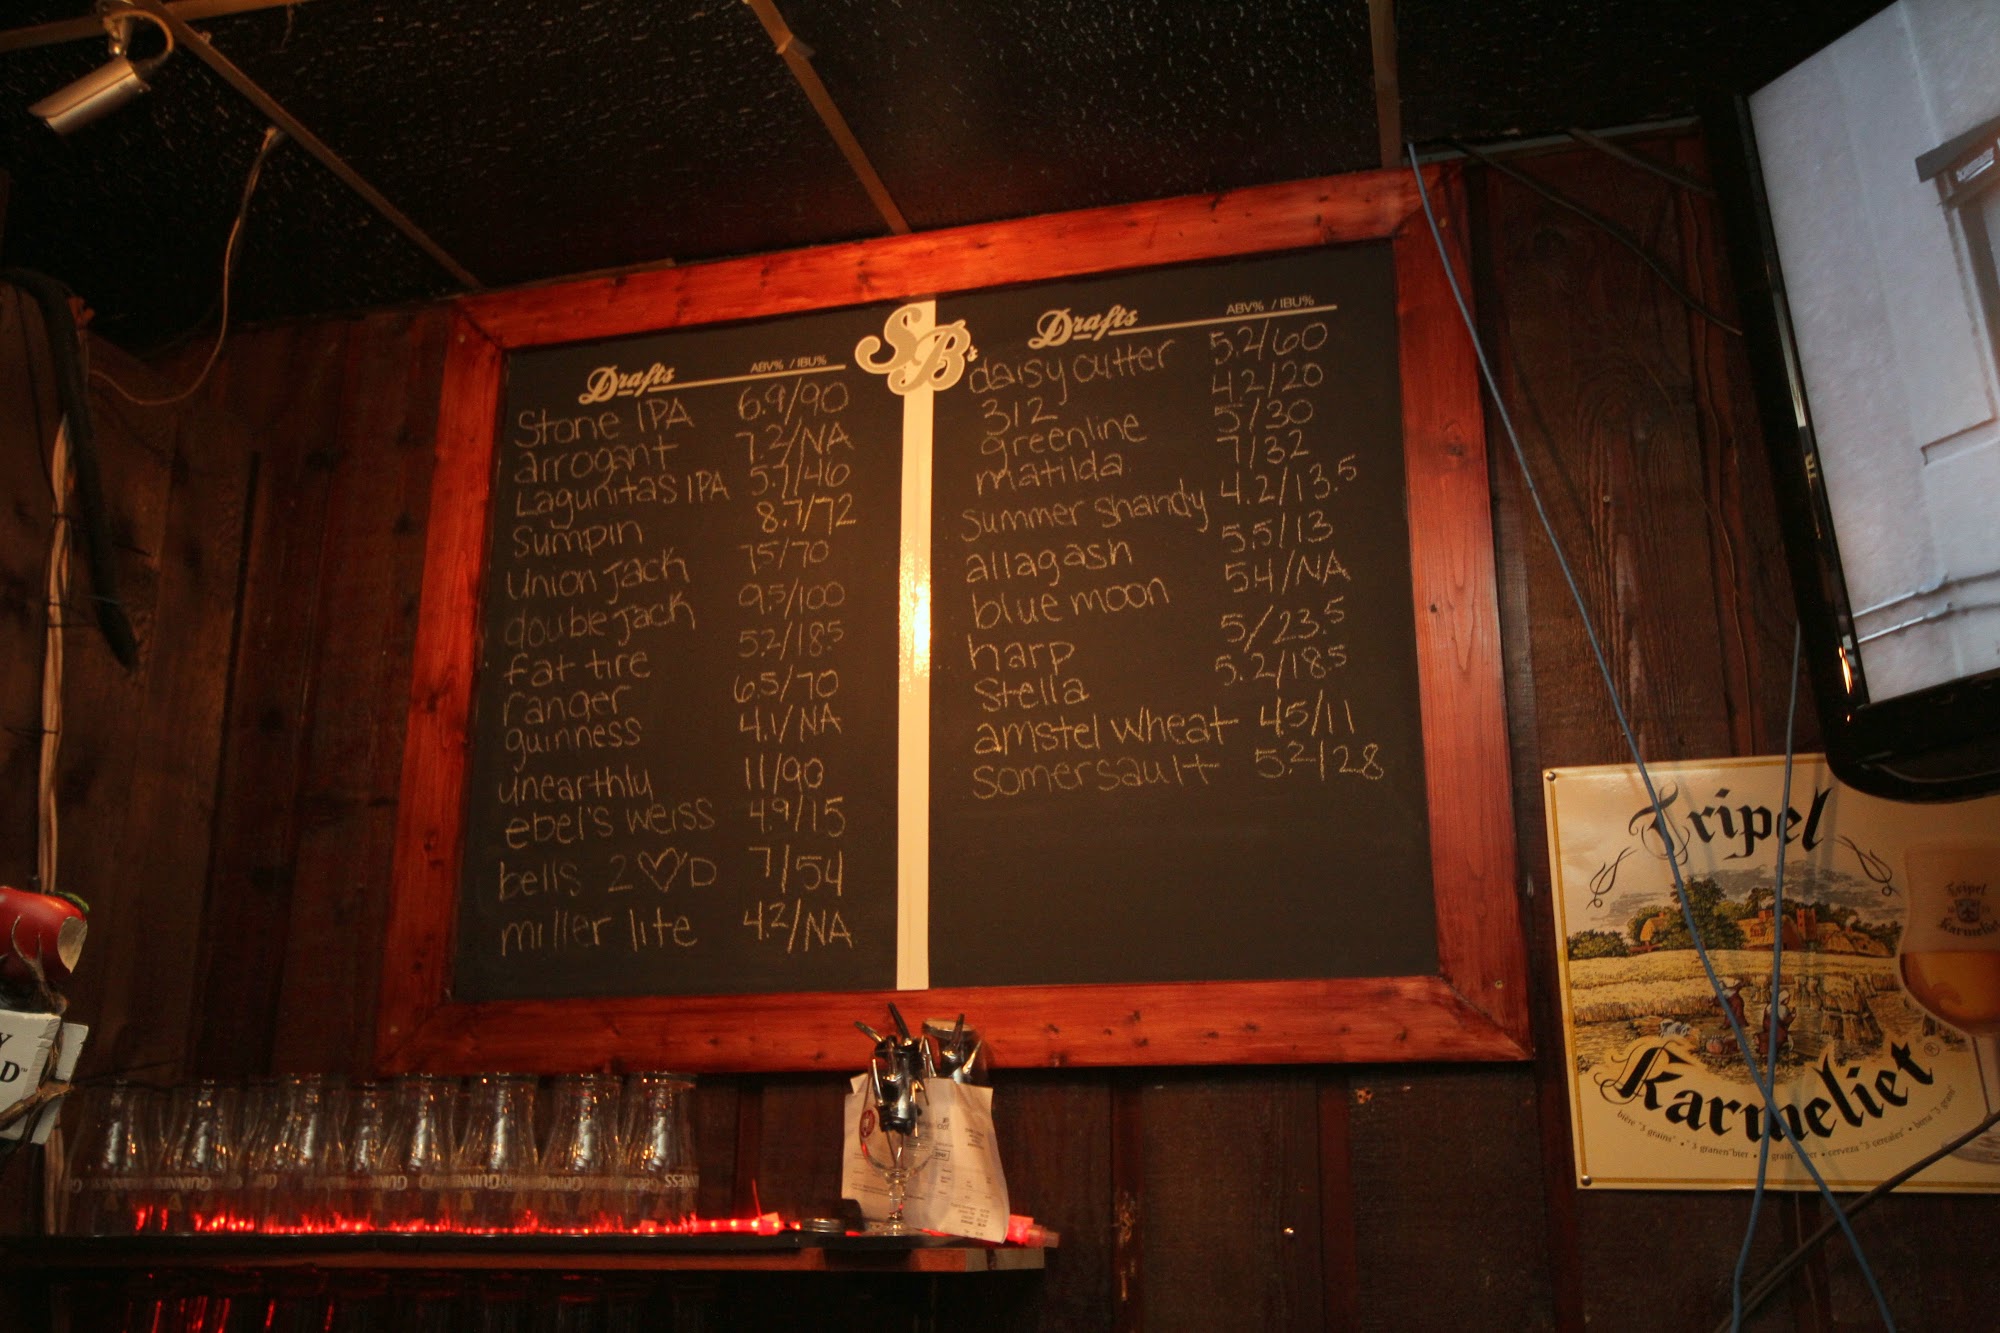 SB's
Drafts ABV% / IBU%
Stone IPA 6.9/90
arrogant 7.2/NA
Lagunitas IPA 5.7/46
Sumpin 8.7/72
Union Jack 7.5/70
double jack 9.5/100
fat tire 5.2/18.5
ranger 6.5/70
guinness 4.1/NA
unearthly 11/90
ebel's weiss 4.9/15
bells 2 ♡'D 7/54
miller lite 4.2/NA
Drafts ABV% / IBU%
daisy cutter 5.2/60
312 4.2/20
greenline 5/30
matilda 7/32
summer shandy 4.2/13.5
allagash 5.5/13
blue moon 5.4/NA
harp 5/23.5
stella 5.2/18.5
amstel wheat 4.5/11
somersault 5.2/28
Tripel
Karmeliet
bière "3 grains" • "3 granen" bier • grain beer • cerveza "3 cereales" • birra "3 grani"
Tripel
Karmeliet
Y
D
GUINNESS